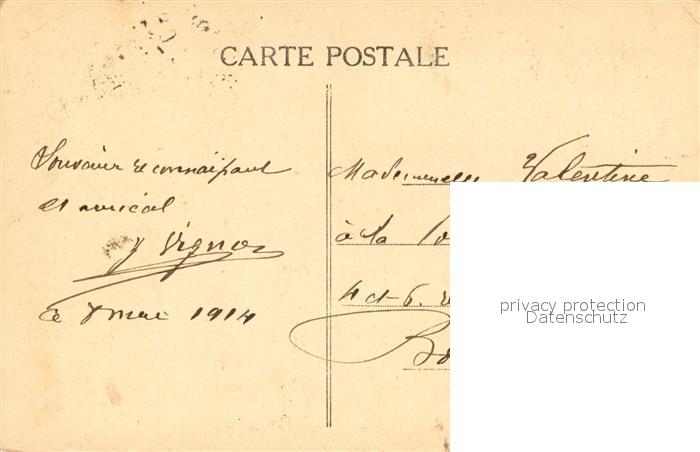 CARTE POSTALE
Souvenir reconnaissant
et amical
J Vignon
ce 8 mai 1914
Mademoiselle Valentine
à la
4 et 6.
privacy protection
Datenschutz